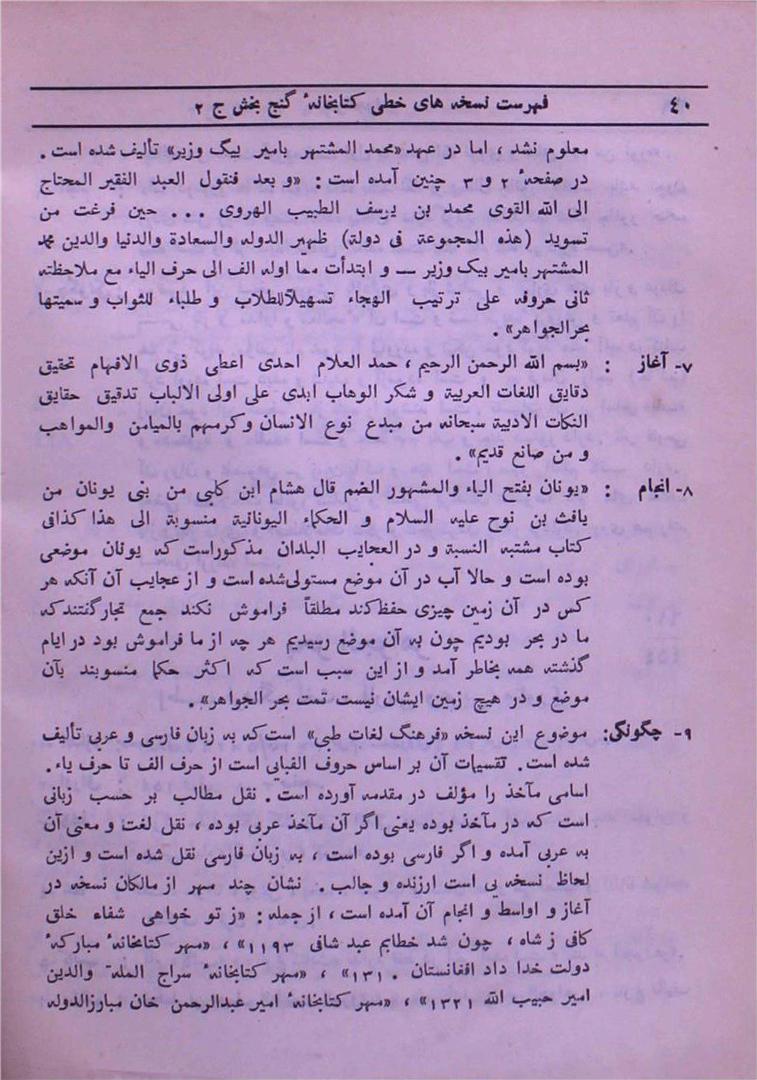 ٤٠ فهرست نسخه های خطی کتابخانهٔ گنج بخش ج ٢
معلوم نشد ، اما در عهد «محمد المشتهر بامیر بیگ وزیر» تألیف شده است .
در صفحهٔ ٢ و ٣ چنین آمده است : «و بعد فنقول العبد الفقیر المحتاج
الی الله القوی محمد بن یوسف الطبیب الهروی ... حین فرغت من
تسوید (هذه المجموعة فی دولة) ظهیر الدوله والسعادة والدنیا والدین محمد
المشتهر بامیر بیگ وزیر — و ابتدأت مما اوله الف الی حرف الیاء مع ملاحظته
ثانی حروفه علی ترتیب الهجاء تسهیلاً للطلاب و طلباء للثواب و سمیتها
بحرالجواهر» .
٧- آغاز : «بسم الله الرحمن الرحیم ، حمد العلام احدی اعطی ذوی الافهام تحقیق
دقایق اللغات العربیة و شکر الوهاب ابدی علی اولی الالباب تدقیق حقایق
النکات الادبیة سبحانه من مبدع نوع الانسان وکرمهم بالمیامن والمواهب
و من صانع قدیم» .
٨- انجام : «یونان بفتح الیاء والمشهور الضم قال هشام ابن کلبی من بنی یونان من
یافث بن نوح علیه السلام و الحکماء الیونانیة منسوبة الی هذا کذافی
کتاب مشتبه النسبة و در العجایب البلدان مذکوراست که یونان موضعی
بوده است و حالا آب در آن موضع مستولی‌شده است و از عجایب آن آنکه هر
کس در آن زمین چیزی حفظ‌کند مطلقاً فراموش نکند جمع تجارگفتندکه
ما در بحر بودیم چون به آن موضع رسیدیم هر چه از ما فراموش بود در ایام
گذشته همه بخاطر آمد و از این سبب است که اکثر حکما منسوبند بآن
موضع و در هیچ زمین ایشان نیست تمت بحر الجواهر» .
٩- چگونگی: موضوع این نسخه «فرهنگ لغات طبی» است‌که به زبان فارسی و عربی تألیف
شده است . تقسیمات آن بر اساس حروف الفبایی است از حرف الف تا حرف یاء .
اسامی مآخذ را مؤلف در مقدمه آورده است . نقل مطالب بر حسب زبانی
است که در مآخذ بوده یعنی اگر آن مآخذ عربی بوده ، نقل لغت و معنی آن
به عربی آمده و اگر فارسی بوده است ، به زبان فارسی نقل شده است و ازین
لحاظ نسخه یی است ارزنده و جالب . نشان چند مهر از مالکان نسخه در
آغاز و اواسط و انجام آن آمده است ، از جمله : «ز تو خواهی شفاء خلق
کافی ز شاه ، چون شد خطابم عبد شافی ١١٩٣» ، «مهر کتابخانهٔ مبارکهٔ
دولت خدا داد افغانستان ١٣١٠» ، «مهر کتابخانهٔ سراج الملة والدین
امیر حبیب الله ١٣٢١» ، «مهر کتابخانهٔ امیر عبدالرحمن خان مبارزالدوله